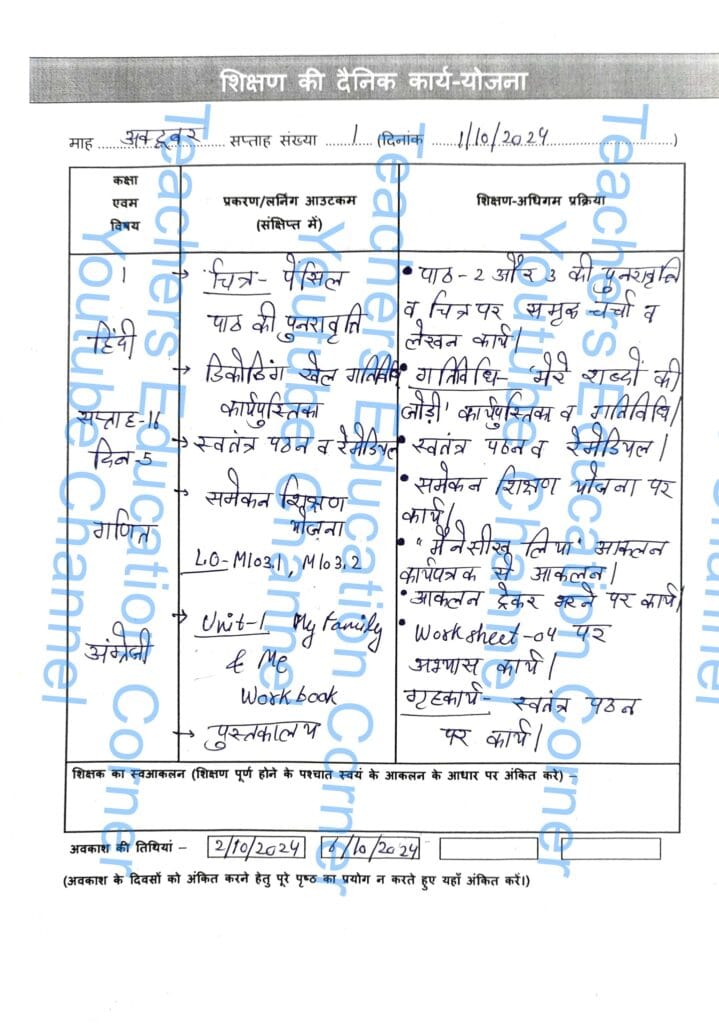 शिक्षण की दैनिक कार्य-योजना
माह अक्टूबर सप्ताह संख्या 1 (दिनांक 1/10/2024)
कक्षा
एवम
विषय
प्रकरण/लर्निंग आउटकम
(संक्षिप्त में)
शिक्षण-अधिगम प्रक्रिया
1
हिंदी
सप्ताह-16
दिन-5
गणित
अंग्रेजी
→ चित्र- पेंसिल
पाठ की पुनरावृत्ति
→ डिकोडिंग खेल गतिविधि
कार्यपुस्तिका
→ स्वतंत्र पठन व रेमेडियल
→ समेकन शिक्षण
योजना
L.O-M103.1, M103.2
→ Unit-1 My Family
& Me
Workbook
→ पुस्तकालय
• पाठ-2 और 3 की पुनरावृत्ति
व चित्र पर समूक चर्चा व
लेखन कार्य।
• गतिविधि- 'मेरे शब्दों की
जोड़ी' कार्यपुस्तिका व गतिविधि।
• स्वतंत्र पठन व रेमेडियल।
• समेकन शिक्षण योजना पर
कार्य।
• "मैंने सीख लिया" आकलन
कार्यपत्रक से आकलन।
• आकलन ट्रेकर भरने पर कार्य।
• Worksheet-04 पर
अभ्यास कार्य।
गृहकार्य- स्वतंत्र पठन
पर कार्य।
शिक्षक का स्वआकलन (शिक्षण पूर्ण होने के पश्चात स्वयं के आकलन के आधार पर अंकित करें) –
अवकाश की तिथियां – 2/10/2024 /10/2024
(अवकाश के दिवसों को अंकित करने हेतु पूरे पृष्ठ का प्रयोग न करते हुए यहाँ अंकित करें।)
Teachers Education Corner
Youtube Channel
Teachers Education Corner
Youtube Channel
Teachers Education Corner
Youtube Channel